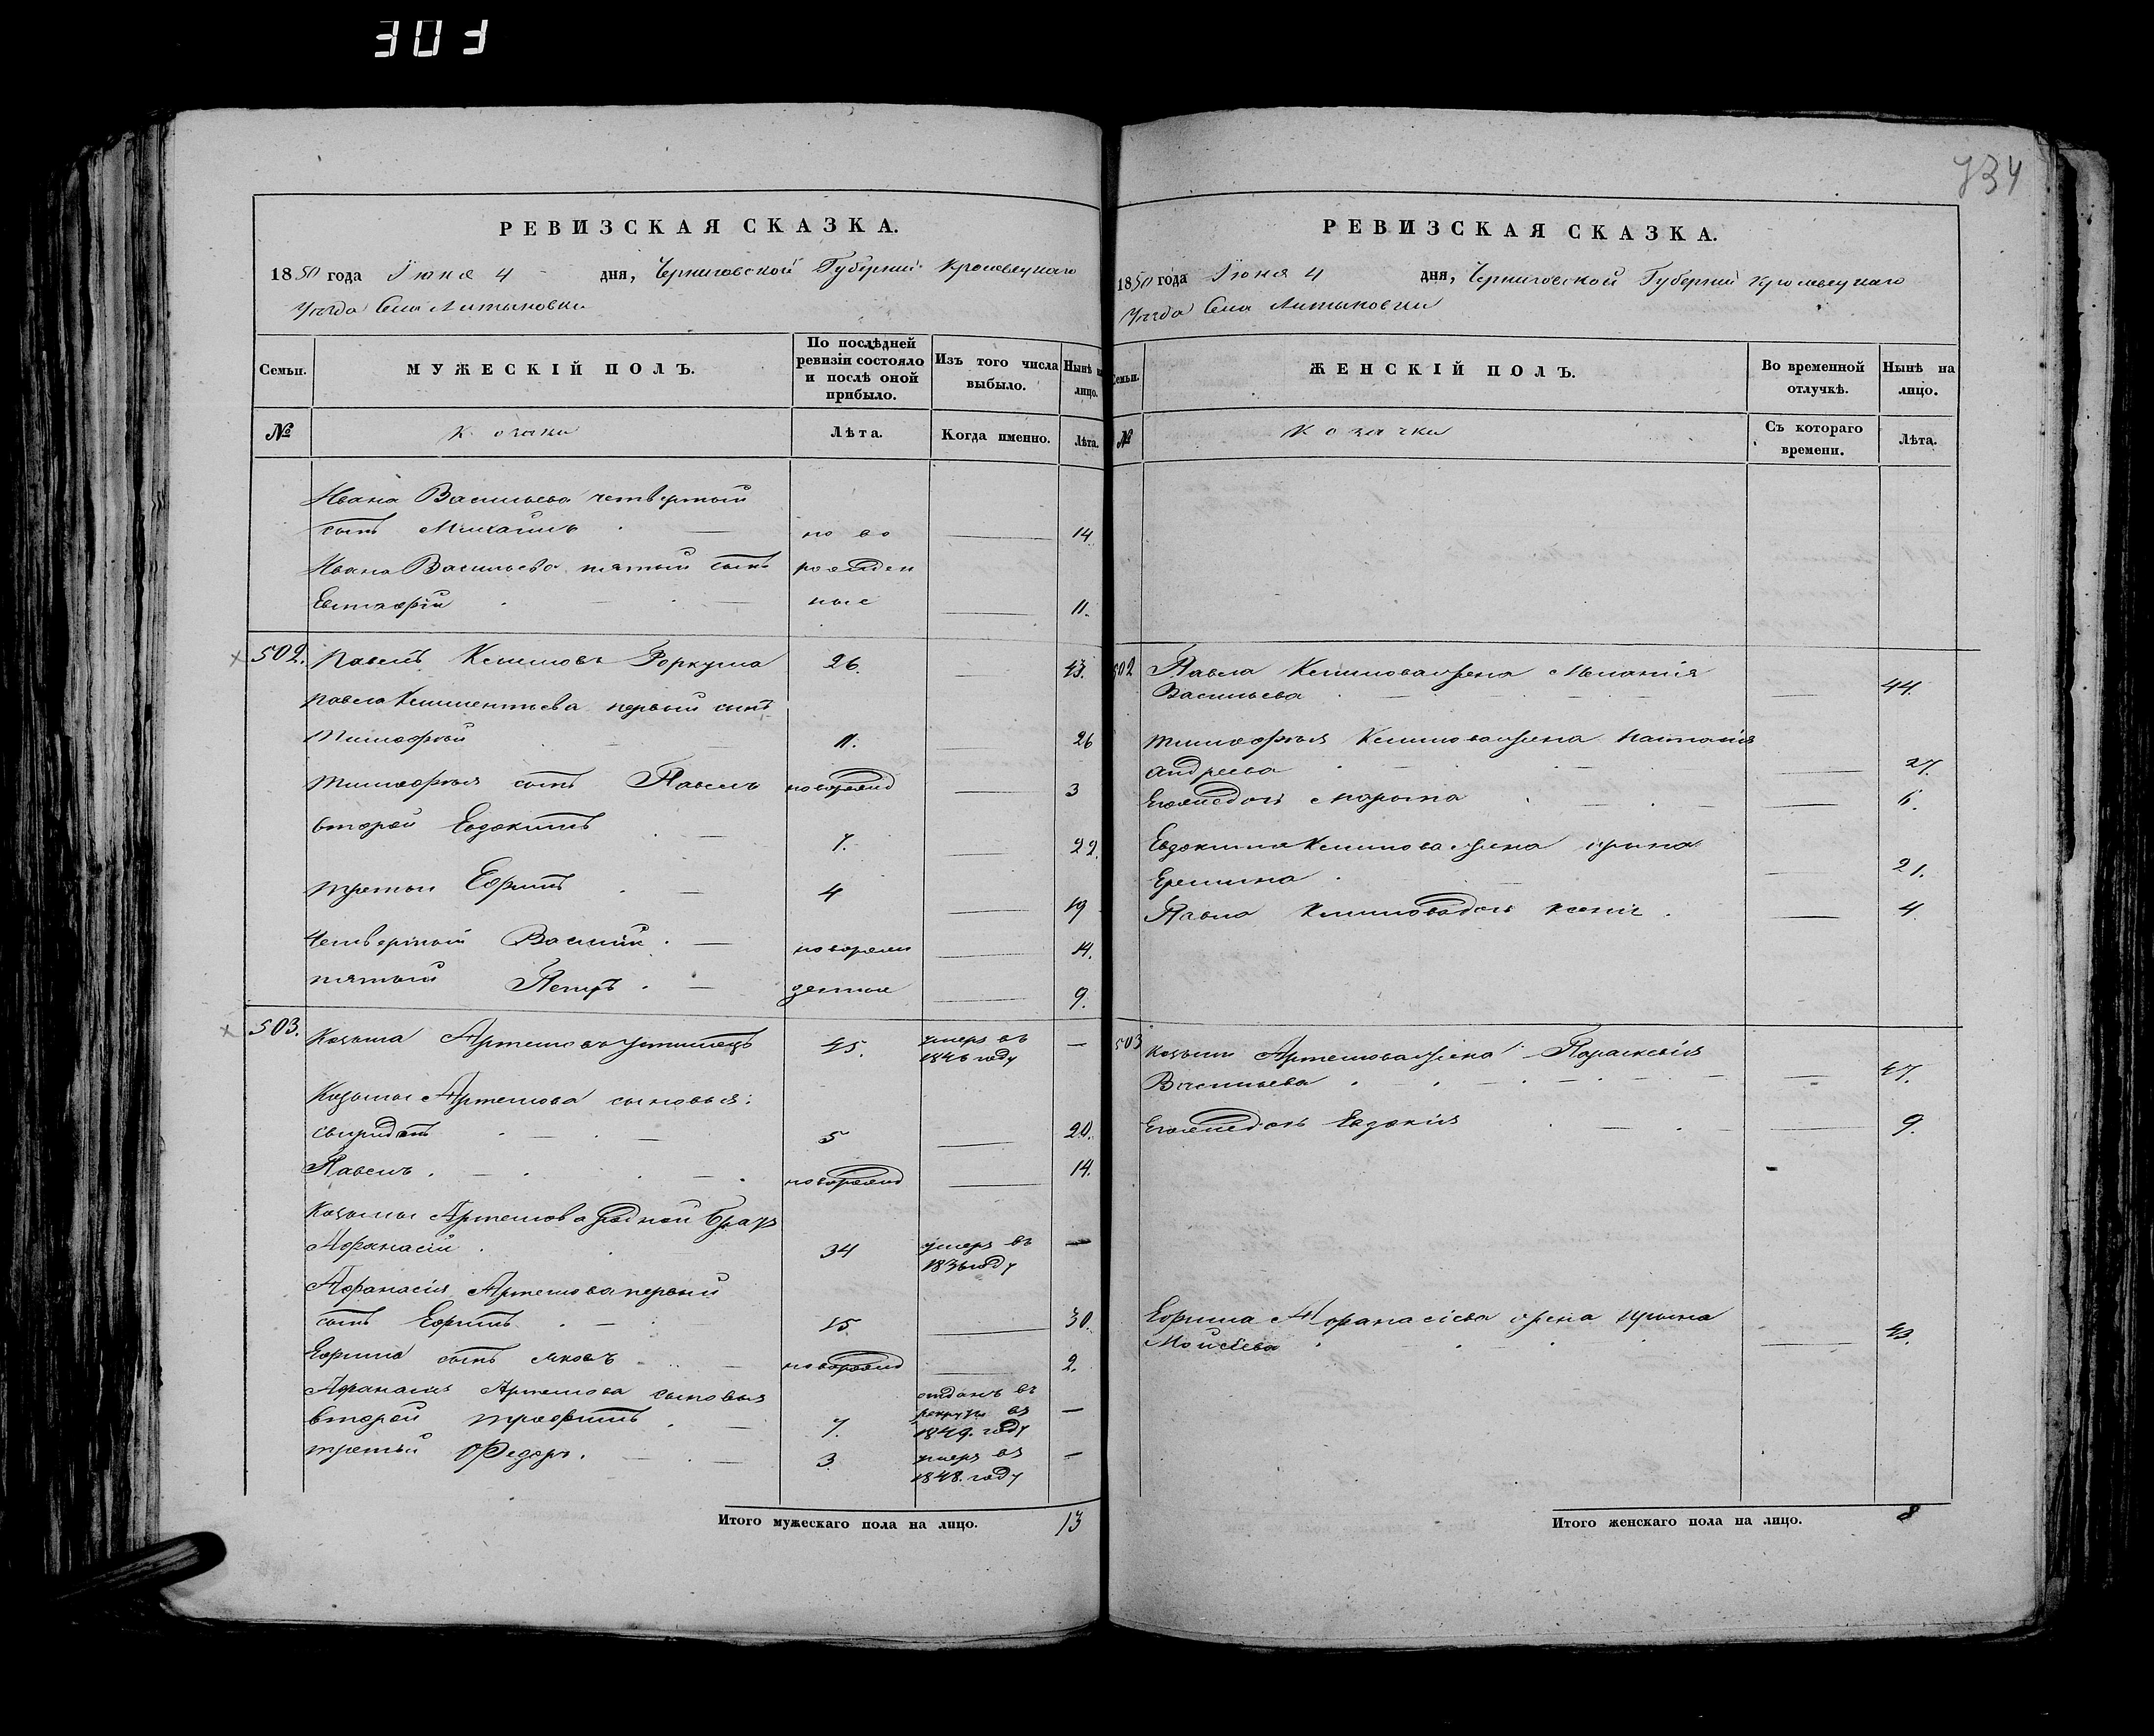 303
734
РЕВИЗСКАЯ СКАЗКА.
1850 года Іюня 4 дня, Черниговской Губерніи Кролевецкаго
Уѣзда Села Литвиновки
Семьи.
МУЖЕСКІЙ ПОЛЪ.
По послѣдней ревизіи состояло и послѣ оной прибыло.
Изъ того числа выбыло.
Нынѣ на лицо.
№
Козаки
Лѣта.
Когда именно.
Лѣта.
Ивана Васильева четвертый
сынъ Михаилъ — ново — 14
Ивана Васильева пятый сынъ рожден
Евстафій — ные — 11.
502. Павелъ Климовъ 26. — 43.
Павла Климентьева первый сынъ
Тимофей 11. 26
Тимофея сынъ Павелъ новорожд — 3
второй Евдокимъ — 7. — 22.
третий Ефимъ — 4 — 19
Четвертый Василій — новорож — 14.
пятый Петръ — денные — 9.
503. Козьма Артемовъ 45. умеръ въ 1846 году —
Козьмы Артемова сыновья:
Свиридонъ — 5 — 20.
Павелъ — новорожд — 14.
Козьмы Артемова родной братъ
Афанасій 34 умеръ въ 1836 году —
Афанасія Артемова первый
сынъ Ефимъ — 15 — 30.
Ефима сынъ Яковъ — новорожд — 2.
Афанасия Артемова сыновья
второй Трофимъ — 7. отданъ въ рекруты въ 1849. году —
третьи Федоръ. — 3. умеръ въ 1848. году —
Итого мужескаго пола на лицо. 13
РЕВИЗСКАЯ СКАЗКА.
1850 года Іюня 4 дня, Черниговской Губерніи Кролевецкаго
Уѣзда Села Литвиновки
Семьи.
ЖЕНСКІЙ ПОЛЪ.
Во временной отлучкѣ.
Нынѣ на лицо.
№
Козачки
Съ котораго времени.
Лѣта.
502 Павла Климова жена Меланія
Васильева — 44.
Тимофея Климова жена Настасія
Андреева — 27.
Егожедочь Марына — 6.
Евдокима Климова жена Ирина
Еремина — 21.
Павла Климова дочь Ксенія — 4.
503 Козьмы Артемова жена Параскевія
Васильева — 47.
Егожедочь Евдокія — 9.
Ефима Афанасіева жена Ирына
Моисѣева —
Итого женскаго пола на лицо. 8